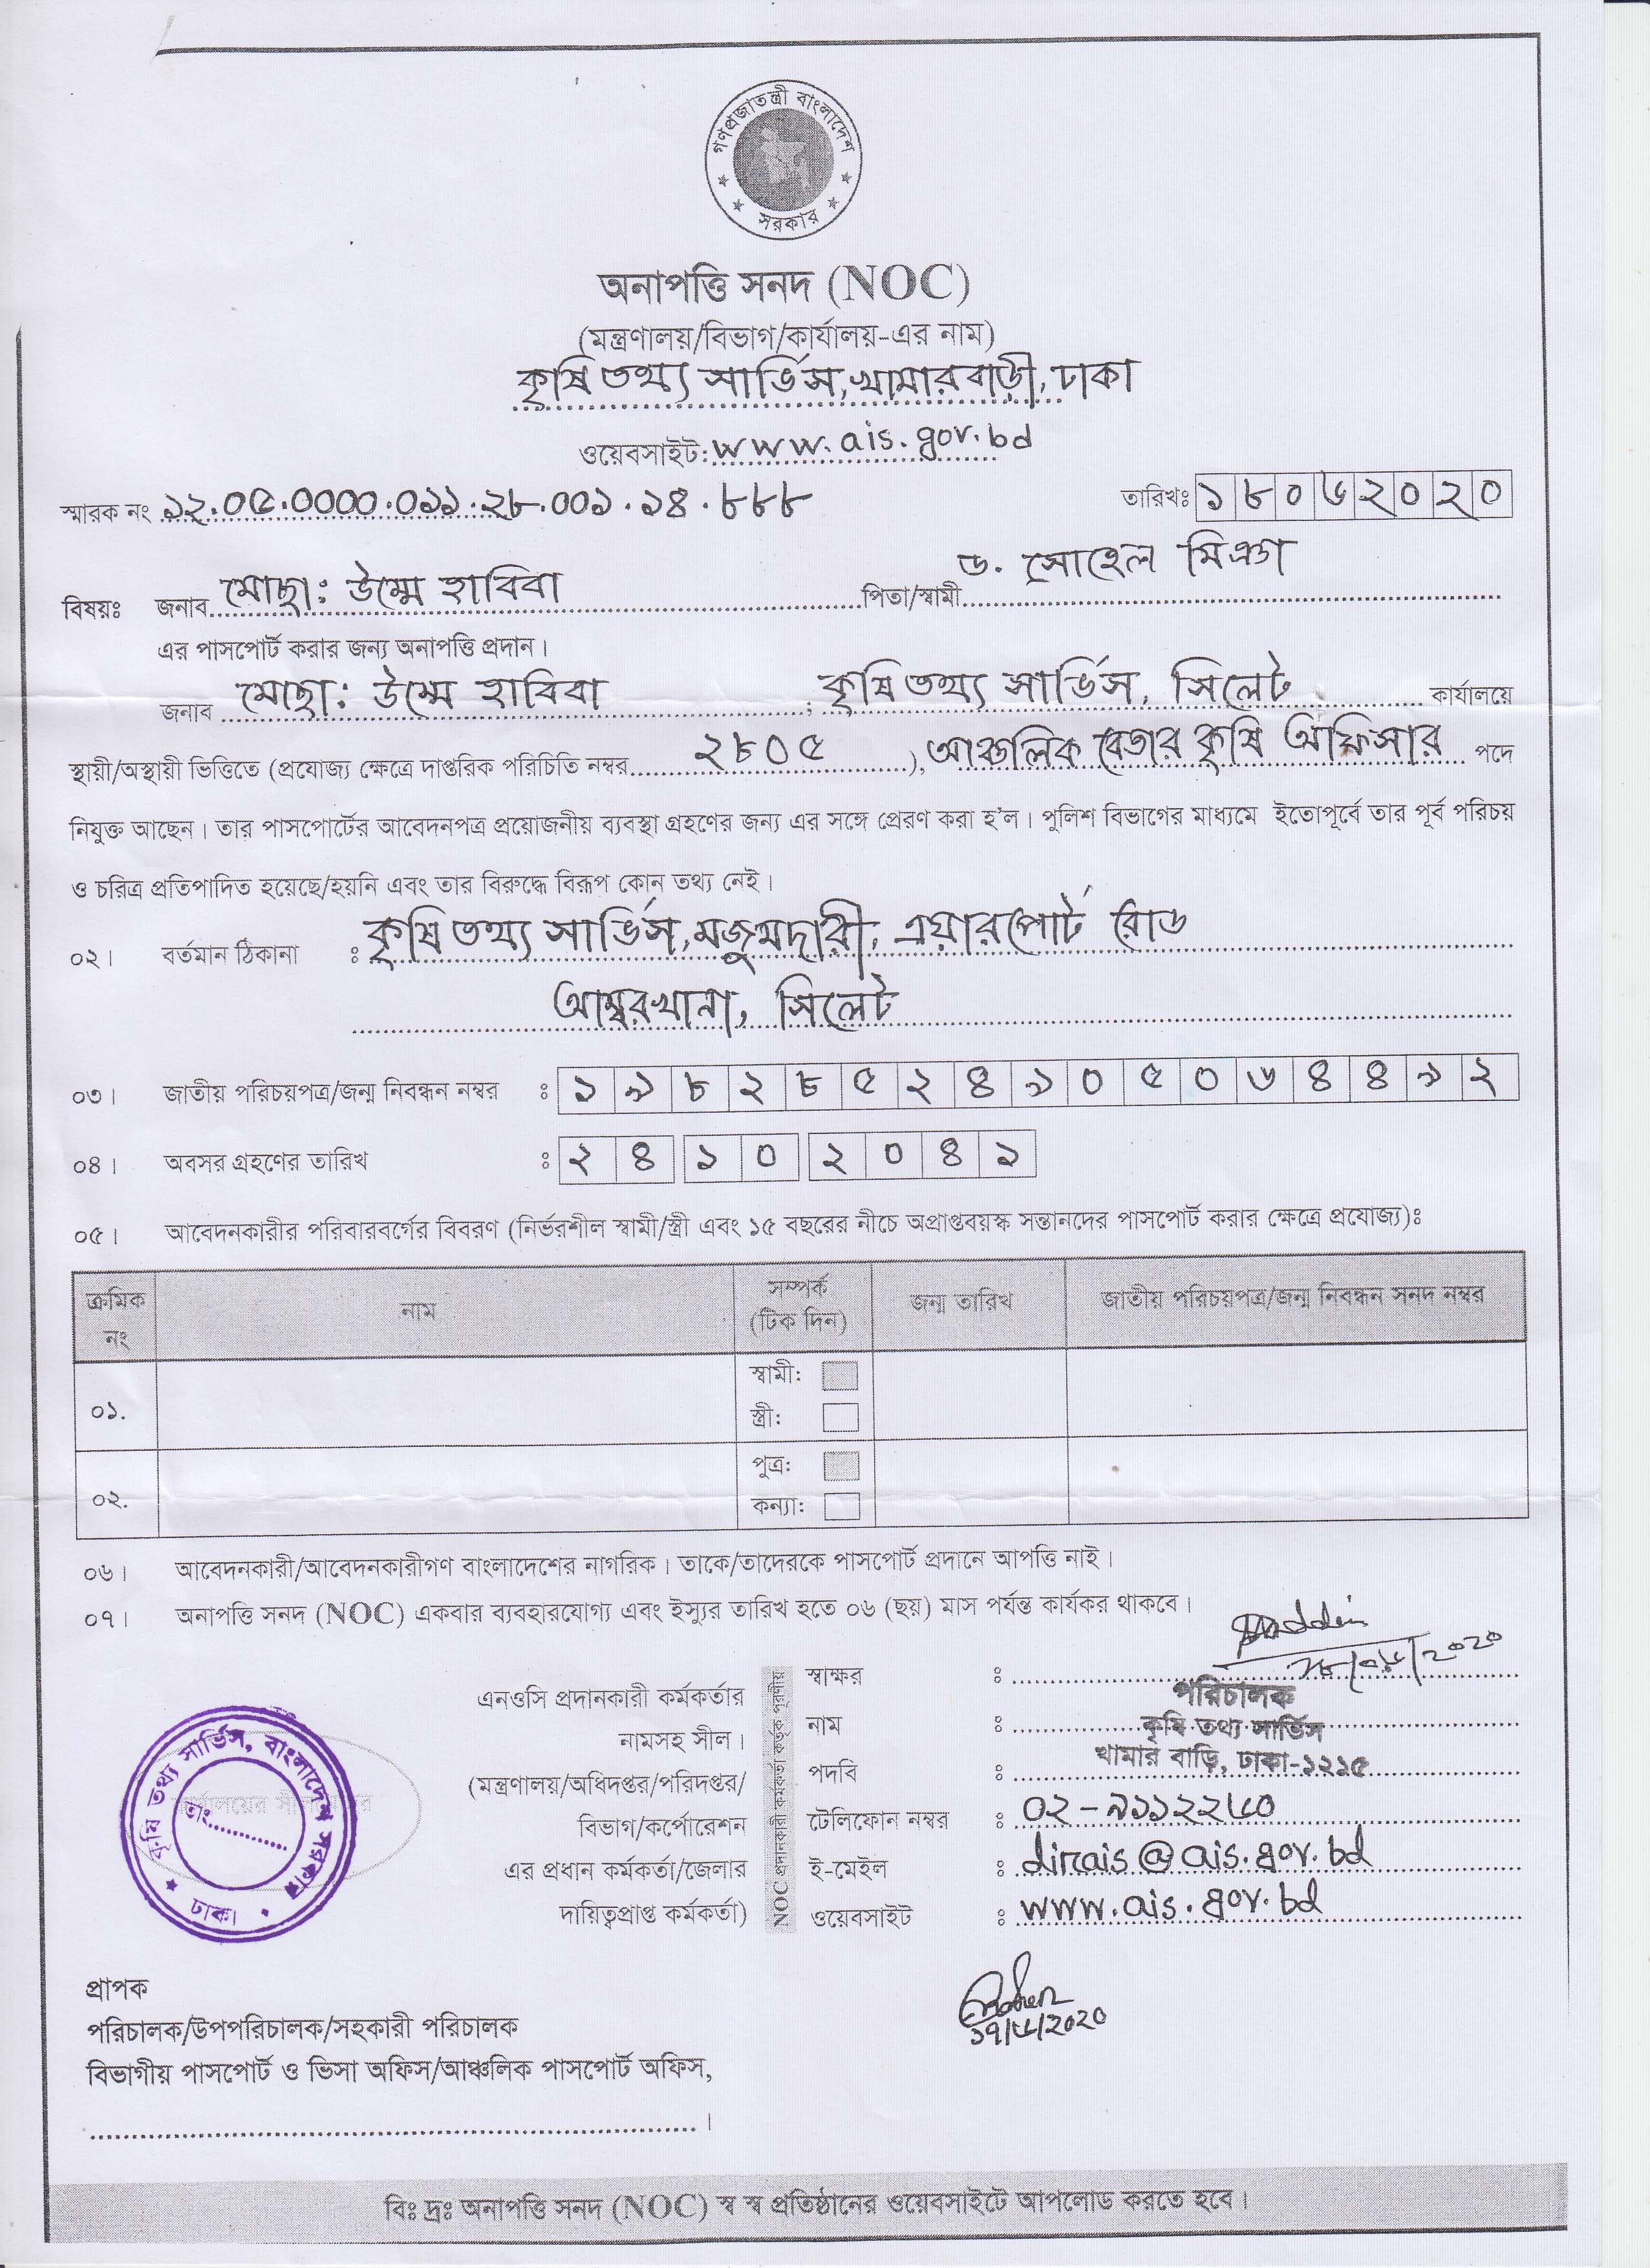 গণপ্রজাতন্ত্রী বাংলাদেশ
সরকার
অনাপত্তি সনদ (NOC)
(মন্ত্রণালয়/বিভাগ/কার্যালয়-এর নাম)
কৃষি তথ্য সার্ভিস, খামারবাড়ী, ঢাকা
ওয়েবসাইট: www.ais.gov.bd
স্মারক নং ১২.০৫.০০০০.০১১.২৮.০০১.১৪.৮৮৮ তারিখঃ ১৮০৬২০২০
বিষয়ঃ জনাব মোছা: উম্মে হাবিবা পিতা/স্বামী ড. সোহেল মিঞা
এর পাসপোর্ট করার জন্য অনাপত্তি প্রদান।
জনাব মোছা: উম্মে হাবিবা, কৃষি তথ্য সার্ভিস, সিলেট কার্যালয়ে
স্থায়ী/অস্থায়ী ভিত্তিতে (প্রযোজ্য ক্ষেত্রে দাপ্তরিক পরিচিতি নম্বর ২৮০৫), আঞ্চলিক বেতার কৃষি অফিসার পদে
নিযুক্ত আছেন। তার পাসপোর্টের আবেদনপত্র প্রয়োজনীয় ব্যবস্থা গ্রহণের জন্য এর সঙ্গে প্রেরণ করা হ'ল। পুলিশ বিভাগের মাধ্যমে ইতোপূর্বে তার পূর্ব পরিচয়
ও চরিত্র প্রতিপাদিত হয়েছে/হয়নি এবং তার বিরুদ্ধে বিরূপ কোন তথ্য নেই।
০২। বর্তমান ঠিকানা : কৃষি তথ্য সার্ভিস, মজুমদারী, এয়ারপোর্ট রোড
আম্বরখানা, সিলেট
০৩। জাতীয় পরিচয়পত্র/জন্ম নিবন্ধন নম্বর : ১৯৮২৮৫২৪৯০৫০৬৪৪৯২
০৪। অবসর গ্রহণের তারিখ : ২৪ ১০ ২০৪১
০৫। আবেদনকারীর পরিবারবর্গের বিবরণ (নির্ভরশীল স্বামী/স্ত্রী এবং ১৫ বছরের নীচে অপ্রাপ্তবয়স্ক সন্তানদের পাসপোর্ট করার ক্ষেত্রে প্রযোজ্য)ঃ
ক্রমিক নং নাম সম্পর্ক (টিক দিন) জন্ম তারিখ জাতীয় পরিচয়পত্র/জন্ম নিবন্ধন সনদ নম্বর
০১. স্বামী:
স্ত্রী:
০২. পুত্র:
কন্যা:
০৬। আবেদনকারী/আবেদনকারীগণ বাংলাদেশের নাগরিক। তাকে/তাদেরকে পাসপোর্ট প্রদানে আপত্তি নাই।
০৭। অনাপত্তি সনদ (NOC) একবার ব্যবহারযোগ্য এবং ইস্যুর তারিখ হতে ০৬ (ছয়) মাস পর্যন্ত কার্যকর থাকবে।
এনওসি প্রদানকারী কর্মকর্তার
নামসহ সীল।
(মন্ত্রণালয়/অধিদপ্তর/পরিদপ্তর/
বিভাগ/কর্পোরেশন
এর প্রধান কর্মকর্তা/জেলার
দায়িত্বপ্রাপ্ত কর্মকর্তা)
NOC প্রদানকারী কর্মকর্তা কর্তৃক পূরণীয়
স্বাক্ষর :
পরিচালক
নাম : কৃষি তথ্য সার্ভিস
খামার বাড়ি, ঢাকা-১২১৫
পদবি :
টেলিফোন নম্বর : ০২-৯১১২২৬০
ই-মেইল : dirais@ais.gov.bd
ওয়েবসাইট : www.ais.gov.bd
কৃষি তথ্য সার্ভিস, বাংলাদেশ সরকার
তাং
ঢাকা।
১৭/৬/২০২০
প্রাপক
পরিচালক/উপপরিচালক/সহকারী পরিচালক
বিভাগীয় পাসপোর্ট ও ভিসা অফিস/আঞ্চলিক পাসপোর্ট অফিস,
।
বিঃ দ্রঃ অনাপত্তি সনদ (NOC) স্ব স্ব প্রতিষ্ঠানের ওয়েবসাইটে আপলোড করতে হবে।